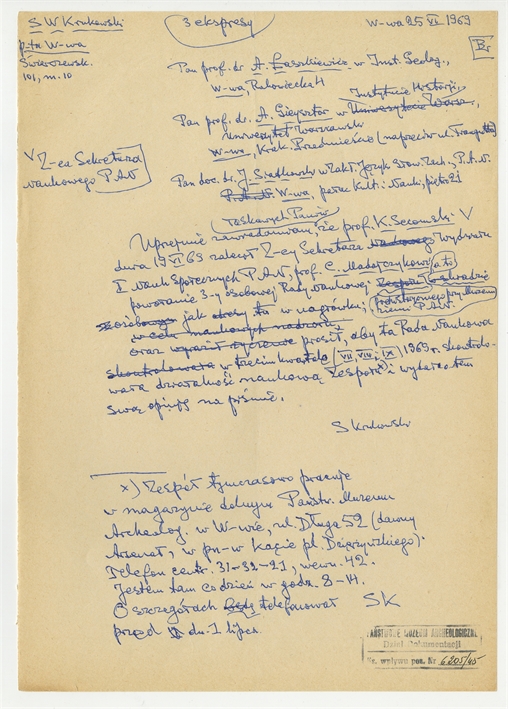 S W Krukowski
p-ta W-wa
Świerczewsk.
101, m. 10
3 ekspresy
W-wa 25 VI 1969
Pan prof. dr A. Łaszkiewicz w Inst. Geolog.,
W-wa, Rakowiecka 4
Instytucie Historji,
Pan prof. dr. A. Gieysztor w Uniwersytecie Warsz.,
Uniwersytet Warszawski
W-wa, Krak. Przedmieście (naprzeciw ul. Traugutta)
Pan doc. dr. J. Siatkowski w Zakł. Język. Słow. Zach., P.A.N.
P.A.N. W-wa, pałac Kult. i Nauk, piętro 21
V Z-ca Sekretarza
naukowego PAN
łaskawych Panów
Uprzejmie zawiadamiam, że prof. K. Secomski V
dnia 19 VI 69 zalecił Z-cy Sekretarza naukowego Wydziału
I Nauk Społecznych P.A.N., prof. C. Madajczykowi, a to
powołanie 3-y osobowej Rady Naukowej Zespołu w składzie
jak ta w nagłówku,
przy Muzeum
P.A.N.
w celu naukowych
oraz wyraził życzenie prosił, aby ta Rada Naukowa
skontrolowała w trzecim kwartale (VII, VIII i IX) 1969 r. skontrolo-
wała działalność naukową Zespołu x) i wydała o tem
swą opinję na piśmie.
S Krukowski
x) Zespół tymczasowo pracuje
w magazynie dolnym Państw. Muzeum
Archeolog. w W-wie, ul. Długa 52 (dawny
Arsenał, w pn-w kącie pl. Dzierżyńskiego).
Telefon centr. 31-32-21, wewn. 42.
Jestem tam codzień w godz. 8-14.
O szczegółach będę telefonował SK
przed dn. 1 lipca.
PAŃSTWOWE MUZEUM ARCHEOLOGICZNE
Dział Dokumentacji
Nr. wpływu poz. Nr 6205/45